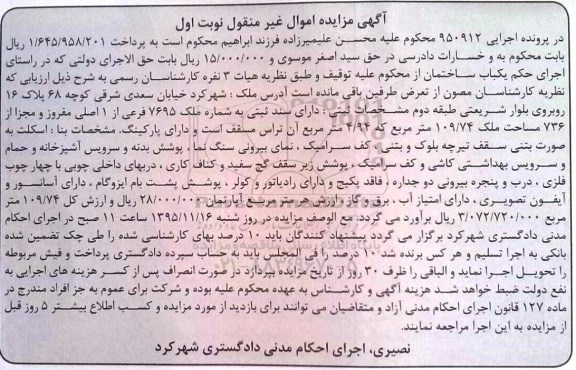 آگهی مزایده اموال غیر منقول نوبت اول
در پرونده اجرایی ۹۵۰۹۱۲ محکوم علیه محسن علیمیرزاده فرزند ابراهیم محکوم است به پرداخت ۱/۶۴۵/۹۵۸/۲۰۱ ریال
بابت محکوم به و خسارات دادرسی در حق سید اصغر موسوی و ۱۵/۰۰۰/۰۰۰ ریال بابت حق الاجرای دولتی که در راستای
اجرای حکم یکباب ساختمان از محکوم علیه توقیف و طبق نظریه هیات ۳ نفره کارشناسان رسمی به شرح ذیل ارزیابی که
نظریه کارشناسان مصون از تعرض طرفین باقی مانده است آدرس ملک : شهرکرد خیابان سعدی شرقی کوچه ۶۸ پلاک ۱۶
روبروی بلوار شریعتی طبقه دوم مشخصات ثبتی : دارای سند ثبتی به شماره ملک ۷۶۹۵ فرعی از ۱ اصلی مفروز و مجزا از
۷۳۶ مساحت ملک ۱۰۹/۷۴ متر مربع که ۴/۹۴ متر مربع آن تراس مسقف است و دارای پارکینگ. مشخصات بنا : اسکلت به
صورت بتنی سقف تیرچه بلوک و بتنی ، کف سرامیک ، نمای بیرونی سنگ نما ، پوشش بدنه و سرویس آشپزخانه و حمام
و سرویس بهداشتی کاشی و کف سرامیک ، پوشش زیر سقف گچ سفید و کناف کاری ، دربهای داخلی چوبی با چهار چوب
فلزی ، درب و پنجره بیرونی دو جداره ، فاقد پکیج و دارای رادیاتور و کولر ، پوشش پشت بام ایزوگام ، دارای آسانسور و
آیفون تصویری ، دارای امتیاز آب ، برق و گاز ، ارزش هر متر مربع آپارتمان ۲۸/۰۰۰/۰۰۰ ریال و ارزش کل ۱۰۹/۷۴ متر
مربع ۳/۰۷۲/۷۲۰/۰۰۰ ریال برآورد می گردد. مع الوصف مزایده در روز شنبه ۱۳۹۵/۱۱/۱۶ ساعت ۱۱ صبح در اجرای احکام
مدنی دادگستری شهرکرد برگزار می گردد پیشنهاد کنندگان باید ۱۰ درصد بهای کارشناسی شده را طی چک تضمین شده
بانکی به اجرا تسلیم و هر کس برنده شد ۱۰ درصد را فی المجلس باید به حساب سپرده دادگستری پرداخت و فیش مربوطه
را تحویل اجرا نماید و الباقی را ظرف ۳۰ روز از تاریخ مزایده بپردازد در صورت انصراف پس از کسر هزینه های اجرایی به
نفع دولت ضبط خواهد شد هزینه آگهی و کارشناس به عهده محکوم علیه بوده و شرکت برای عموم به جز افراد مندرج در
ماده ۱۲۷ قانون اجرای احکام مدنی آزاد و متقاضیان می توانند برای بازدید از مورد مزایده و کسب اطلاع بیشتر ۵ روز قبل
از مزایده به این اجرا مراجعه نمایند.
نصیری، اجرای احکام مدنی دادگستری شهرکرد